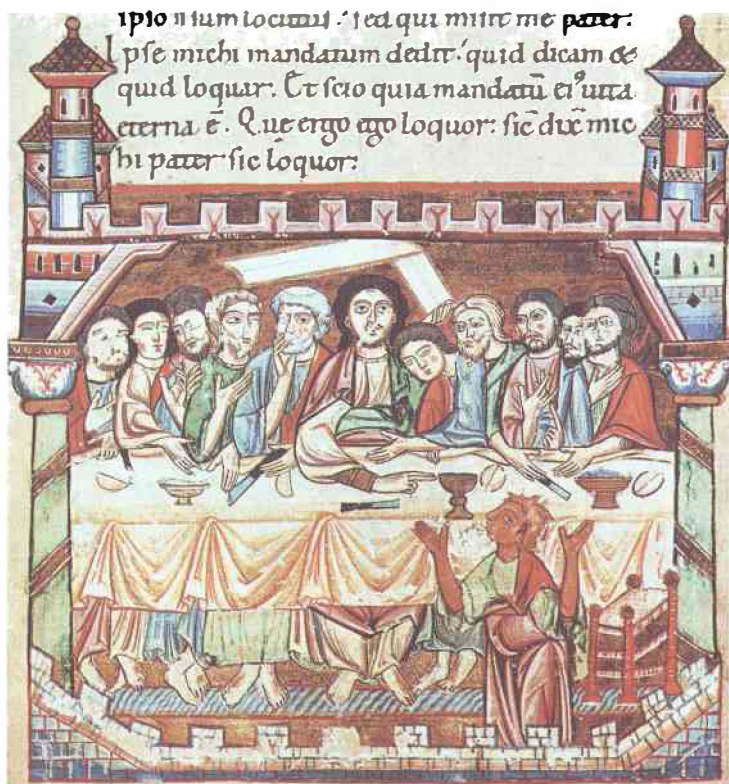 ipso n sum locutus. sed qui misit me pater.
Ipse michi mandatum dedit. quid dicam &
quid loquar. Et scio quia mandatū eiꝰ uita
eterna ē. Que ergo ego loquor. sic dix̄ mic
hi pater sic loquor.